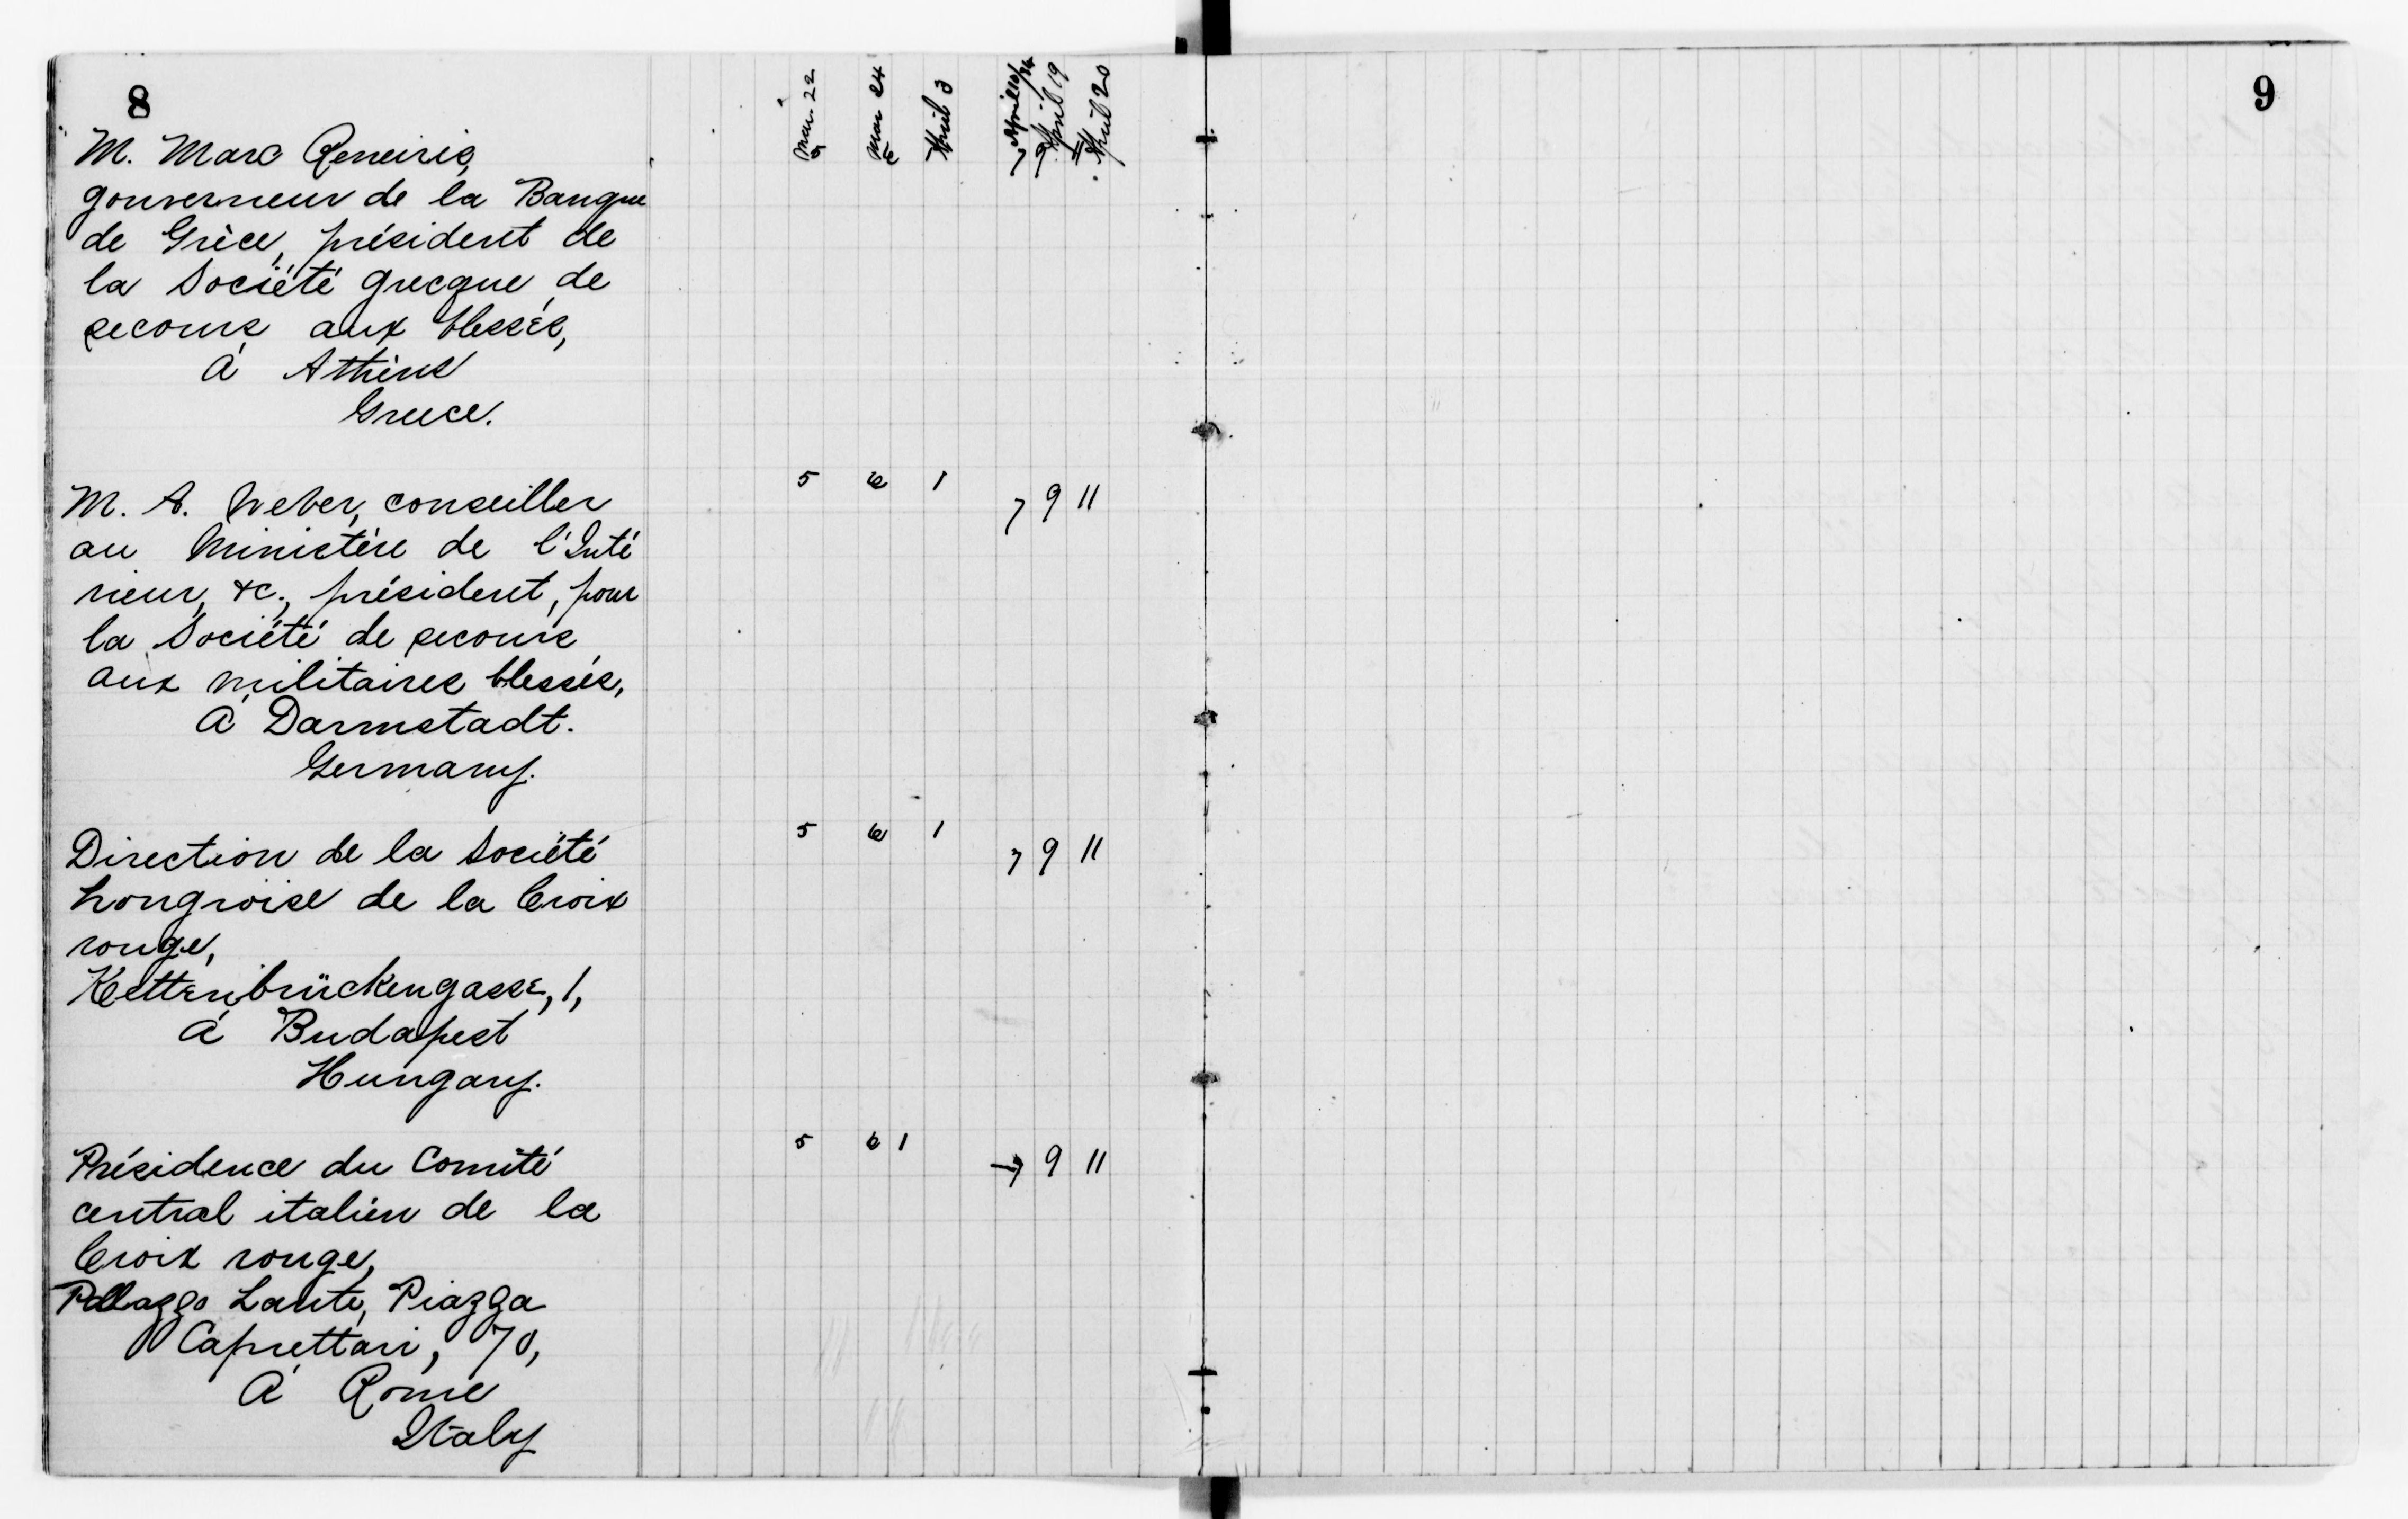 8
Mar. 22
5
Mar 24
6
April 3
April 10/14
7
April 19
9
April 20
11
M. Marc Reneiris,
gouverneur de la Banque
de Grèce, président de
la Société grecque de
secours aux blessés,
à Athène
Greece.
5 6 1 7 9 11
M. A. Weber, conseiller
au Ministère de l'Inté
rieur, &c., président, pour
la Société de secours
aux militaires blessés,
à Darmstadt.
Germany.
5 6 1 7 9 11
Direction de la Société
hongroise de la Croix
rouge,
Kettenbrückengasse, 1,
à Budapest
Hungary.
5 6 1 7 9 11
Présidence du Comité
central italien de la
Croix rouge,
Palazzo Lante, Piazza
Caprettari, 70,
à Rome
Italy
9